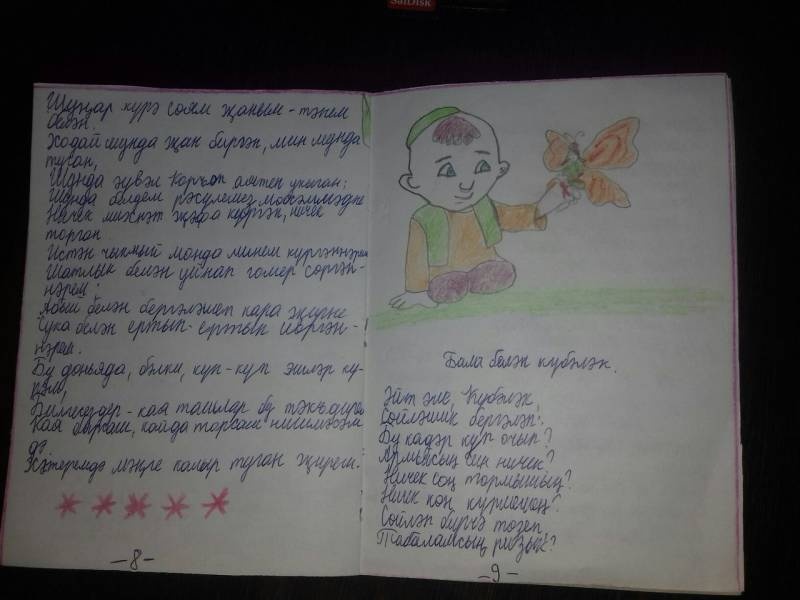 SanDisk
Шуңар күрә сөям җаным-тәнем
белән.
Ходай мунда җан биргән, мин мунда
туган,
Шунда әүвәл Коръән аятен укыган;
Шунда белдем рәсүлемез Мөхәммәдне
Ничек михнәт җәфа күргән, ничек
торган.
Истән чыкмый монда минем күргәннәрем
Шатлык белән уйнап гомер сөргән-
нәрем;
Абый белән бергәләшеп кара җирне
Сука белән ертып-ертып йөргән-
нәрем.
Бу дөньяда, бәлки, күп-күп эшләр кү-
рәм,
Билгесездер - кая ташлар бу тәкъдирем
Кая барсам, кайда торсам нишләсәм
дә
Хәтеремдә мәңге калыр туган җирем.
-8-
Бала белән күбәләк.
Әйт әле, Күбәләк,
Сөйләшик бергәләп:
Бу кадәр күп очып?
Армыйсың син ничек?
Ничек соң тормышың?
Ничек көн күрмешең?
Сөйләп бирче тезеп,
Табаламсың ризык?
-9-